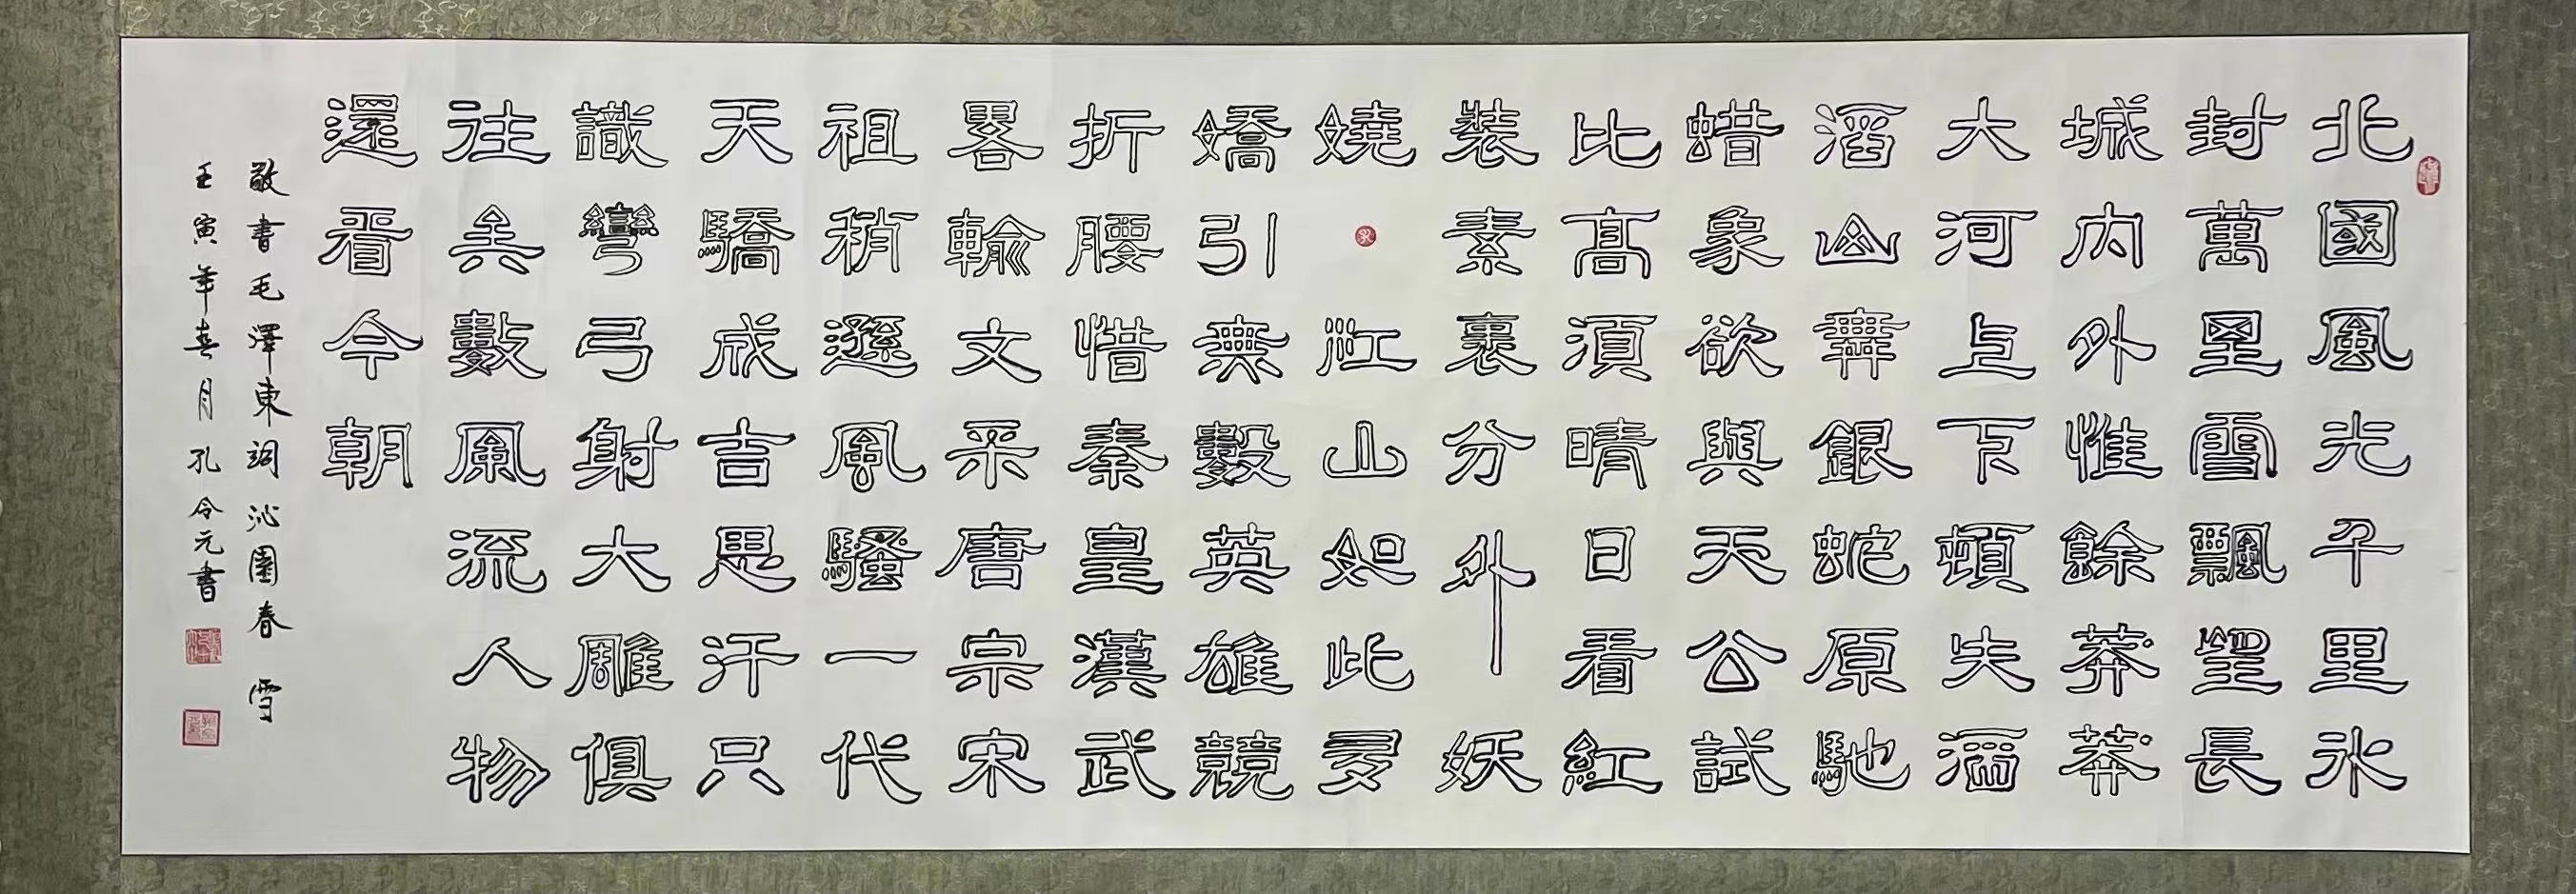 北國風光千里冰
封萬里雪飄望長
城內外惟餘莽莽
大河上下頓失滔
滔山舞銀蛇原馳
蜡象欲與天公試
比髙須晴日看紅
裝素裹分外妖
嬈江山如此多
嬌引無數英雄競
折腰惜秦皇漢武
畧輸文采唐宗宋
祖稍遜風騷一代
天驕成吉思汗只
識彎弓射大雕俱
往矣數風流人物
還看今朝
敬書毛澤東詞沁園春 雪
壬寅年春月孔令元書